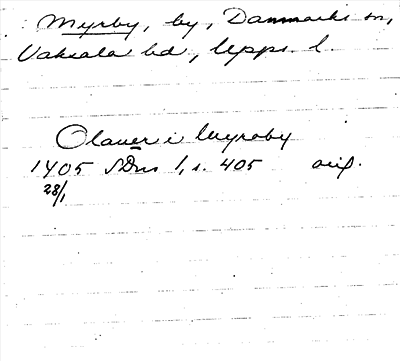 Myrby, by, Danmarks sn,
Vaksala hd, Upps. l.
Olauer i Myroby
1405 SDns 1, s. 405 orig.
28/1